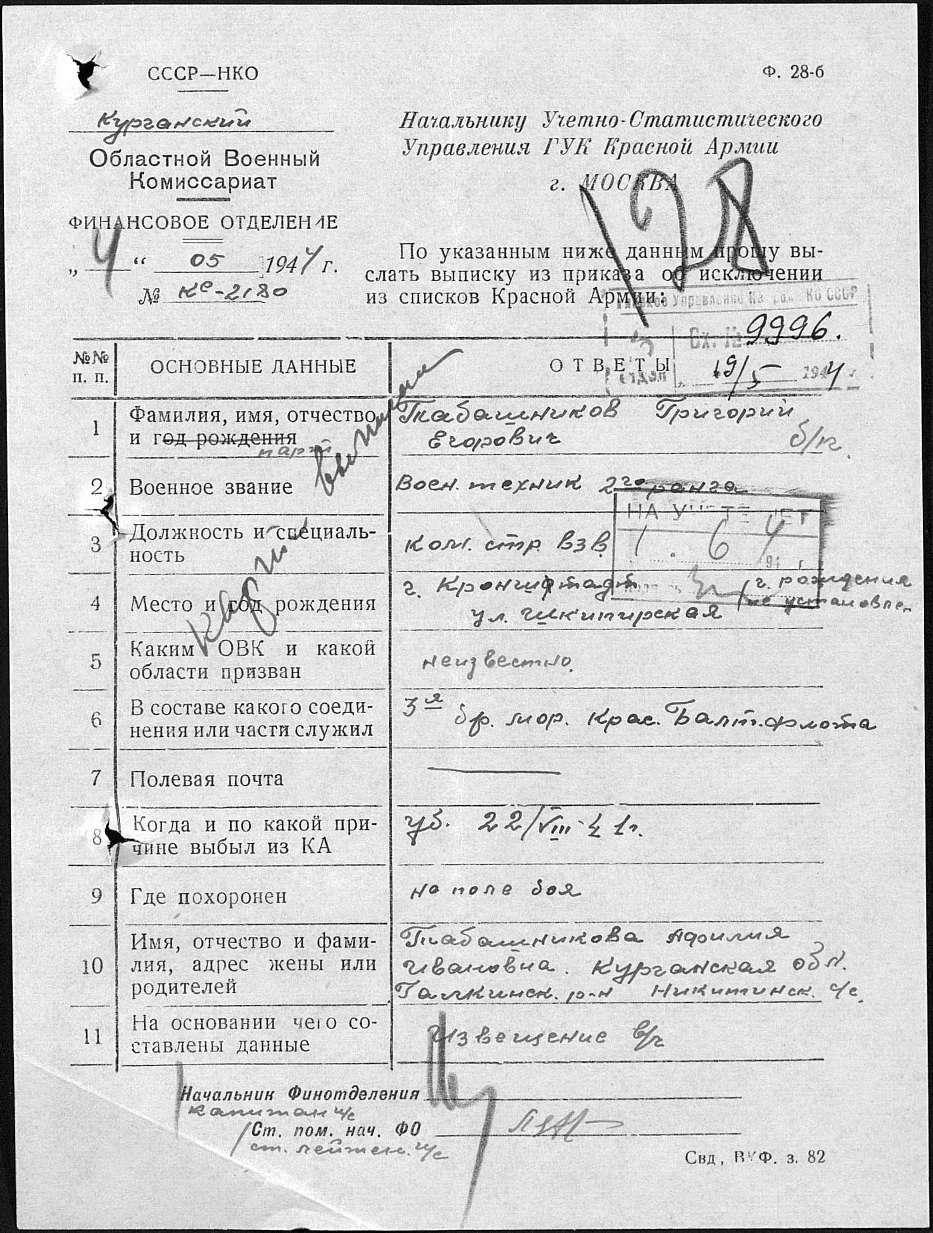 СССР—НКО
Ф. 28-б
Курганский
Областной Военный
Комиссариат
ФИНАНСОВОЕ ОТДЕЛЕНИЕ
„ 4 “ 05 1944 г.
№ КФ-2180
Начальнику Учетно-Статистического
Управления ГУК Красной Армии
г. МОСКВА
128
По указанным ниже данным прошу вы-
слать выписку из приказа об исключении
из списков Красной Армии:
Вх. № 9996.
отдел „ 19/5 1944 г.
№№ п. п.
ОСНОВНЫЕ ДАННЫЕ
ОТВЕТЫ
1
Фамилия, имя, отчество
и год рождения
парт
Табашников Григорий
Егорович б/п.
2
Военное звание
Воен. техник 2го ранга
НА УЧЕТЕ НЕТ
1 6 4
194 г.
3
Должность и специаль-
ность
ком. стр взв
4
Место и год рождения
г. Кронштадт г. рождения
ул. Шкипирская не установлен
5
Каким ОВК и какой
области призван
неизвестно.
6
В составе какого соеди-
нения или части служил
3я бр. мор. Крас. Балт. флота
7
Полевая почта
—
8
Когда и по какой при-
чине выбыл из КА
уб. 22/VIII-41г.
9
Где похоронен
на поле боя
10
Имя, отчество и фами-
лия, адрес жены или
родителей
Табашникова Афилия
Ивановна. Курганская обл.
Галкинск. р-н Никитинск. с/с.
11
На основании чего со-
ставлены данные
Извещение в/ч
Начальник Финотделения
капитан и/с
Ст. пом. нач. ФО
ст. лейтен. и/с
Свд, ВУФ. з. 82